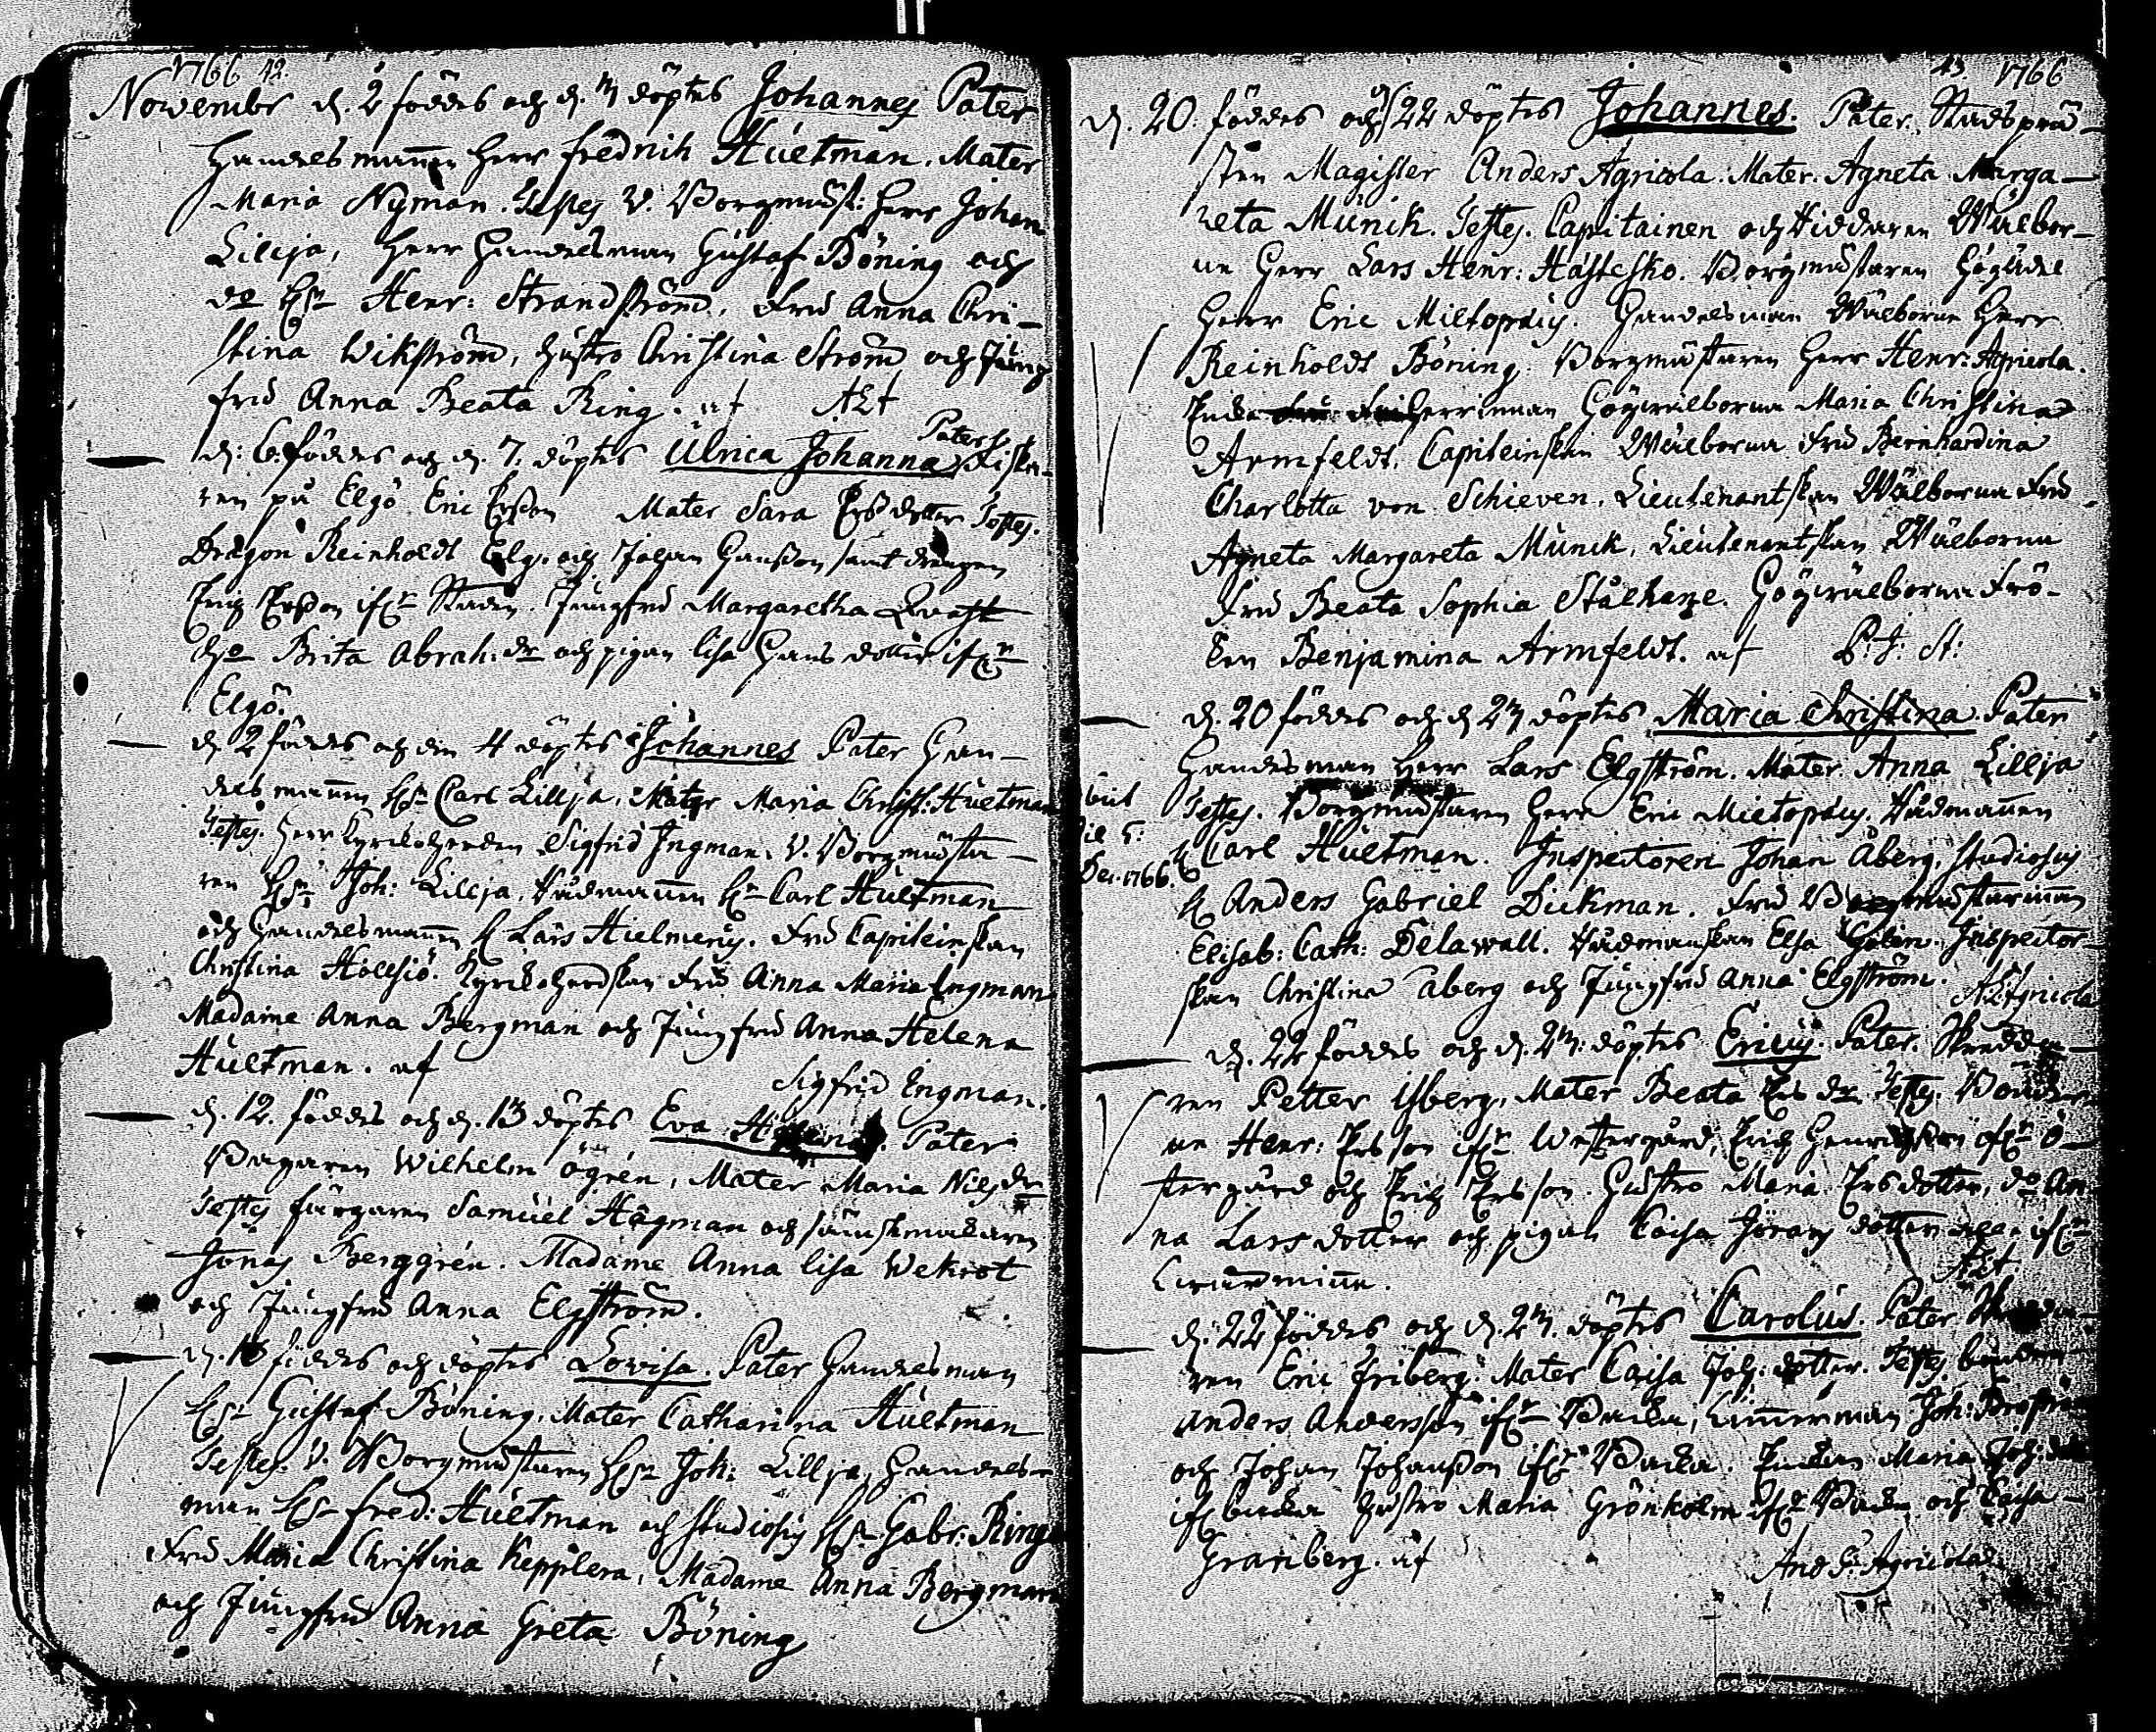 1766 42.
Novembr d. 2 föddes och d. 3 döptes Johannes Pater
Handelsmannen Herr Fredrich Hületman. Mater
Maria Nyman. Testes V. Borgmäst: Herr Johan
Lillja, Herr Handelsman Gustaf Böning och
do Hr Henr: Strandström, Fru Anna Chri-
stina Wikström, hustro Christina Ström och Jung
fru Anna Beata Ring. af
d: 6. föddes och d. 7. döptes Ulrica Johanna Pater Fiska-
ren på Elgö Eric Ersson Mater Sara Ersdotter Testes.
Dragon Reinholdt Elg. och Johan Hansson samt drengen
Erich Ersson ifrn Staden. Jungfru Margaretha Qvast
Ho Brita Abrah: dr och pigan Lisa Hans dotter ifrn
Elgö.
d 2 föddes och den 4 döptes Johannes Pater Han-
delsmannen Hr Carl Lillja, Mater Maria Christ: Hüetman
Testes. Herr Kyrckoherden Sigfrid Ingman. V. Borgmästa-
ren Hr Joh: Lillja, Rådmannen Hr Carl Hüetman
och Handelsmannen H Lars Hielmerus. Fru Capiteinskan
Christina Hollsiö. Kyrckoherdskan Fru Anna Maria Engman
Madame Anna Bergman och Jungfru Anna Helena
Hüetman. af
Sigfrid Engman.
d. 12. föddes och d. 13 döptes Eva Pater
Bagaren Wilhelm Ögrén, Mater Maria Nils dr
Testes färgaren Samuel Hägman och
Jonas Berggrén. Madame Anna Lisa Wekrot
och Jungfru Anna Elgström.
d. föddes och döptes Lovisa. Pater Handelsman
Hr Gustaf Böning. Mater Catharina Hüetman
Testes. V. Borgmästaren Hr Joh: Lillja, Handels-
man Hr Fred: Hüetman och Studiosus Hr Gabr: Ring
Fru Maria Christina Kepplera, Madame Anna Bergman
och Jungfru Anna Greta Böning
43. 1766
d. 20. föddes och d 22 döptes Johannes. Pater. Stadsprä-
sten Magister Anders Agricola. Mater. Agneta Marga-
reta Munck. Testes. Capitainen och Riddaren Wälbor-
ne Herr Lars Henr: Hästesko. Borgmästaren Högädle
Herr Eric Miltopæus. Handelsman Wälborne Herr
Reinholdt Böning. Borgmästaren Herr Henr: Agricola.
Encke Herrinnan Högwälborna Maria Christina
Armfeldt. Capiteinskan Wälborna Fru Bernhardina
Charlotta von Schieven. Lieutenantskan Wälborna Fru
Agneta Margareta Munck. Lieutenantskan Wälborna
Fru Beata Sophia Stålhane. Högwälborna Frö-
ken Benjamina Armfeldt. af P: J: St:
d. 20 föddes och d 23 döptes Maria Christina. Pater
Handelsman Herr Lars Elgström. Mater. Anna Lillja
Testes. Borgmästaren Herr Eric Mieltopæus. Rådmannen
H Carl Hüetman. Inspectoren Johan Åberg. Studiosus
H Anders Gabriel Dickman. Fru Borgmästarinnan
Elisab: Cath: Delawall. Rådmanskan Elsa Inspector-
skan Christina Åberg och Jungfru Anna Elgström.
Agricola
Der. 1766.
d. 22 föddes och d. 23. döptes Ericus. Pater. Skredda-
ren Petter Isberg, Mater Beata Ers dr. Testes. Bonde-
ne Henr: Ersson ifrn Westergård, Erich Henricsson ifrn Ö-
stergård och Erich Ersson. Hustro Maria Ersdotter, do An-
na Larsdotter och pigan Caisa Jörans dotter alla ifrn
d: 22 föddes och d. 23. döptes Carolus. Pater
ren Eric Friberg. Mater Caisa Joh: dotter. Testes. bonden
Anders Andersson ifrn Backa, Timmerman Joh:
och Johan Johansson ifrn Backa. Enckan Maria Joh: dr
ifrn backa hustro Maria Grönholm ifrn Backa och Caisa
Granberg. af And S: Agricola